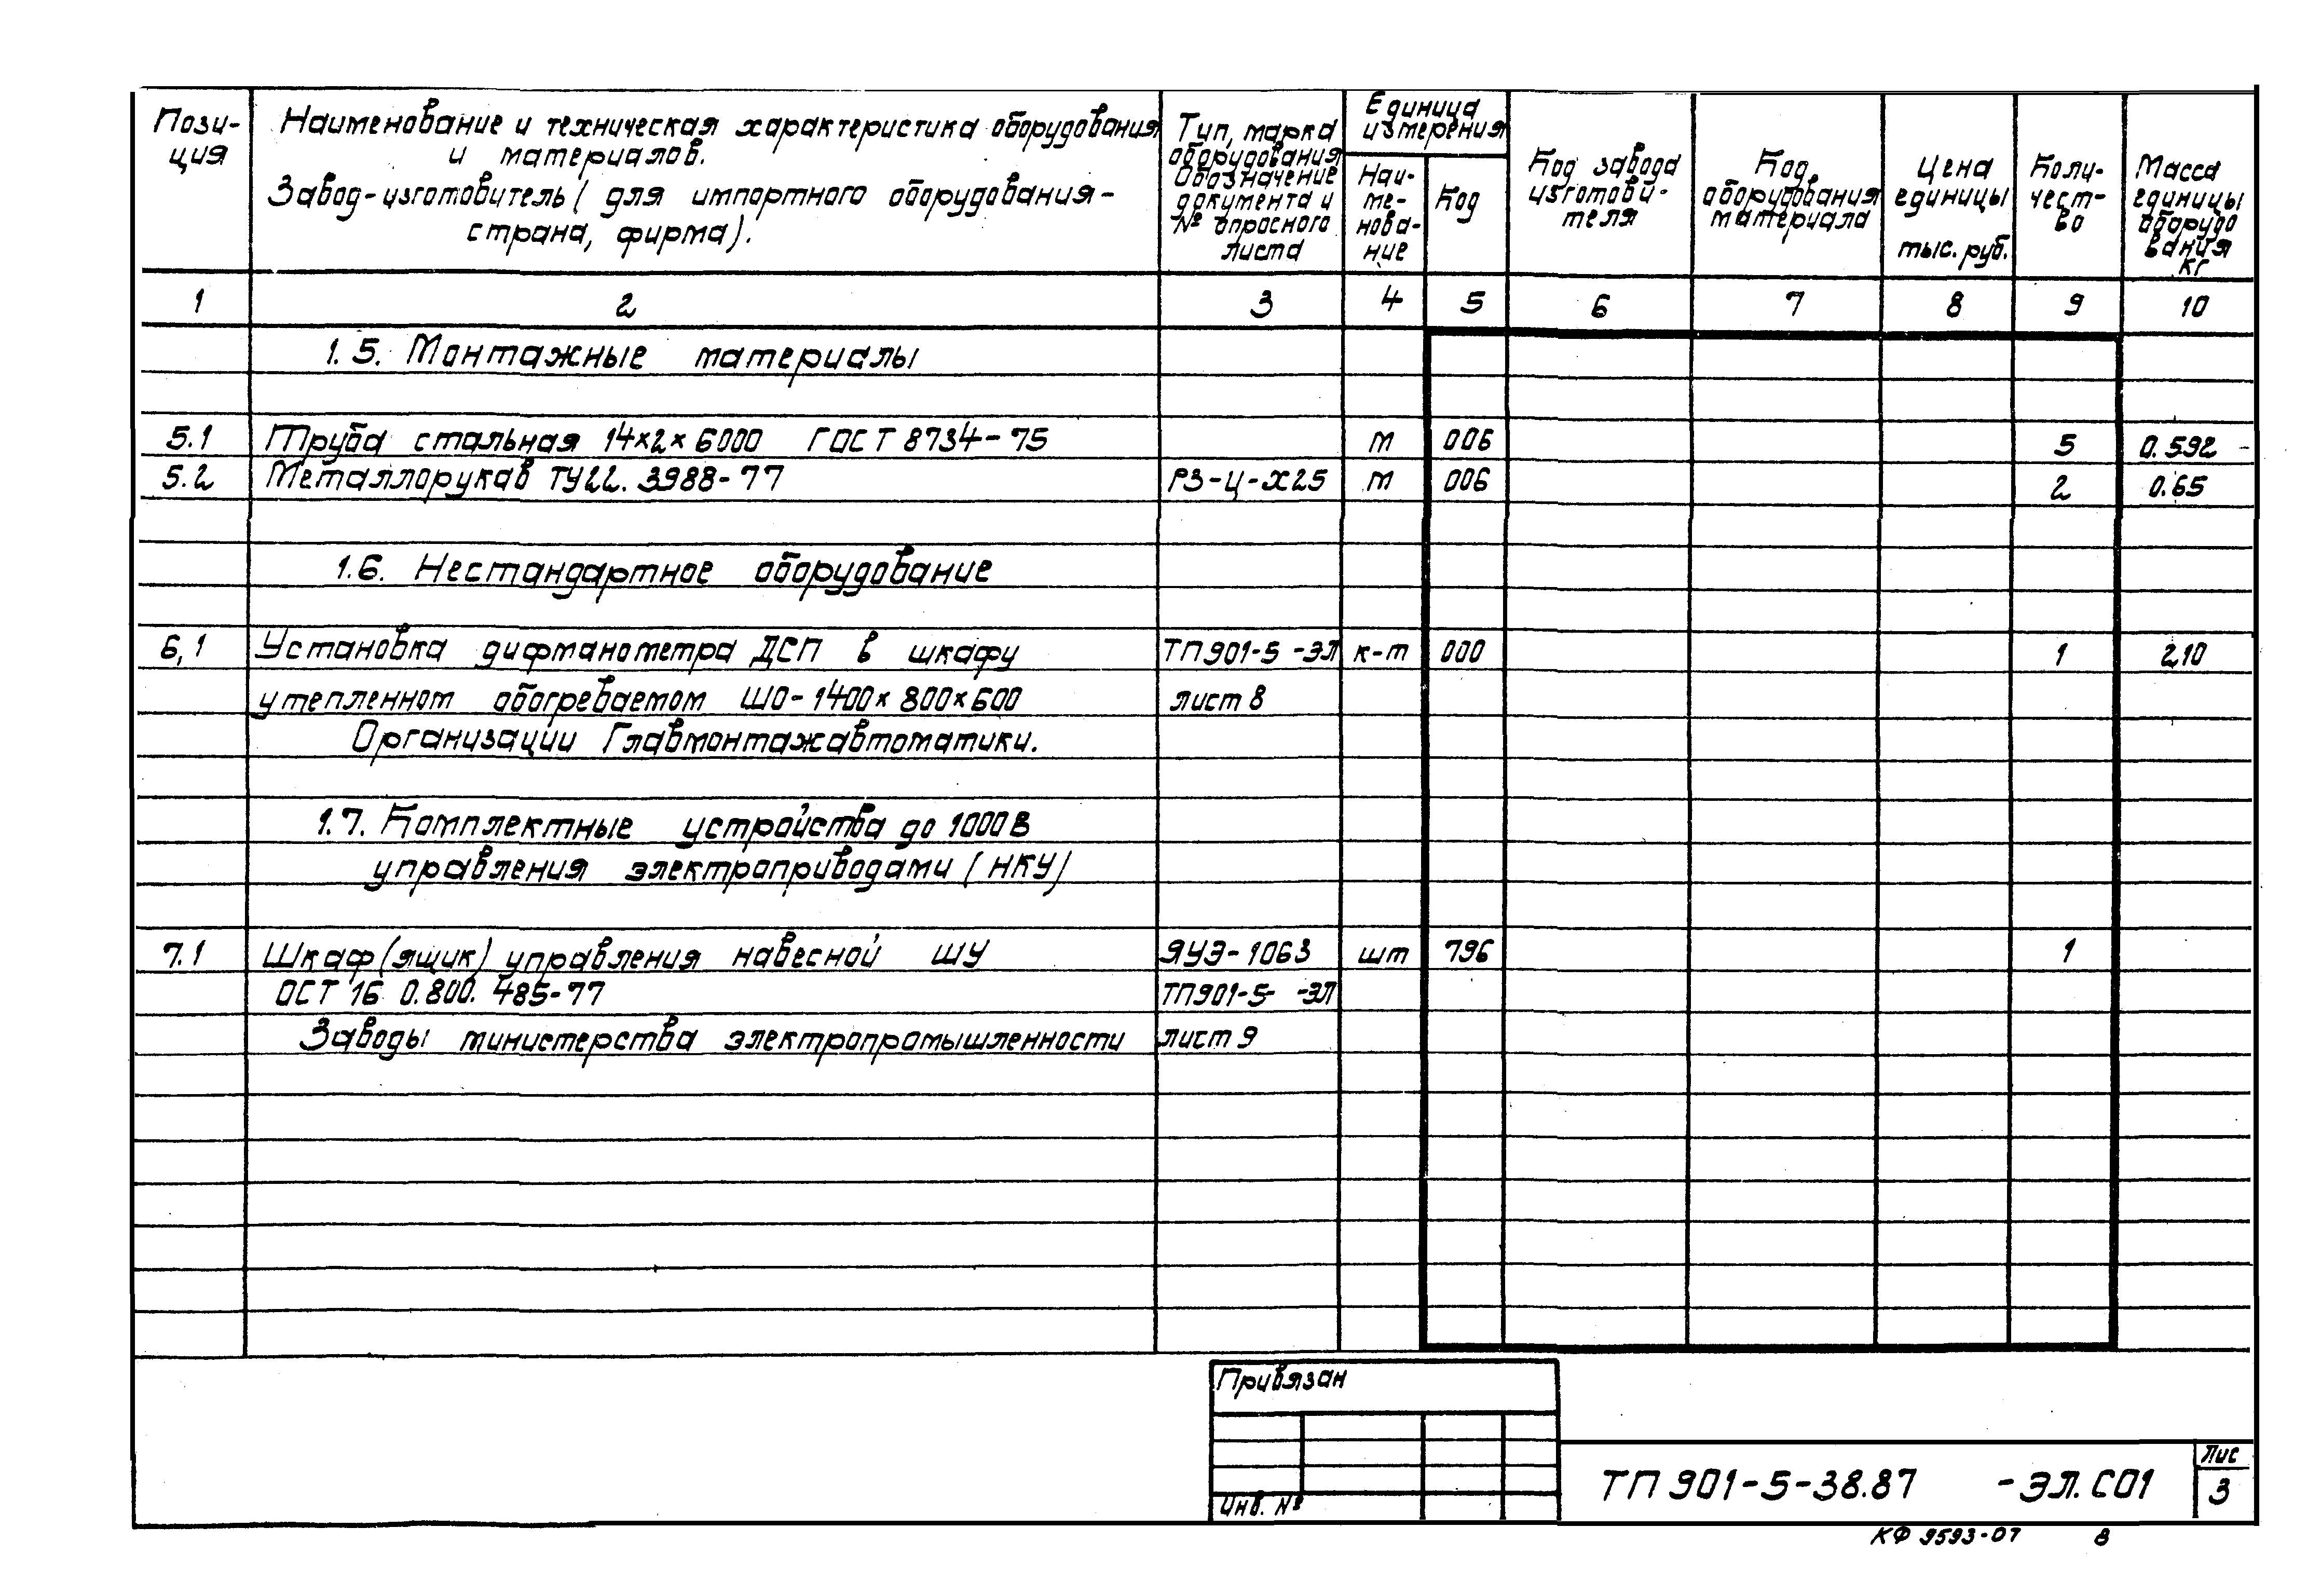 Пози-
ция
Наименование и техническая характеристика оборудования
и материалов.
Завод-изготовитель (для импортного оборудования-
страна, фирма).
Тип, марка
оборудования
Обозначение
документа и
№ опросного
листа
Единица
измерения
Наи-
ме-
нова-
ние
Код
Код завода
изготови-
теля
Код
оборудования
материала
Цена
единицы
тыс. руб.
Коли-
чест-
во
Масса
единицы
оборудо
вания
кг
1 2 3 4 5 6 7 8 9 10
1.5. Монтажные материалы
5.1 Труба стальная 14×2×6000 ГОСТ 8734-75 м 006 5 0.592
5.2 Металлорукав ТУ22.3988-77 РЗ-Ц-Х25 м 006 2 0.65
1.6. Нестандартное оборудование
6,1 Установка дифманометра ДСП в шкафу ТП901-5 -ЭЛ к-т 000 1 210
утепленном обогреваемом ШО-1400×800×600 лист 8
Организации Главмонтажавтоматики.
1.7. Комплектные устройства до 1000В
управления электроприводами (НКУ)
7.1 Шкаф (ящик) управления навесной ШУ ЯУЭ-1063 шт 796 1
ОСТ 16 0.800.485-77 ТП901-5- -ЭЛ
Заводы министерства электропромышленности лист 9
Привязан
Инв. №
ТП 901-5-38.87 -ЭЛ.СО1
Лис
3
КФ 9593-07 8